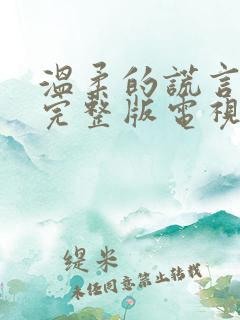 溫柔的謊言
完整版電視
缇米
未经同意禁止转载